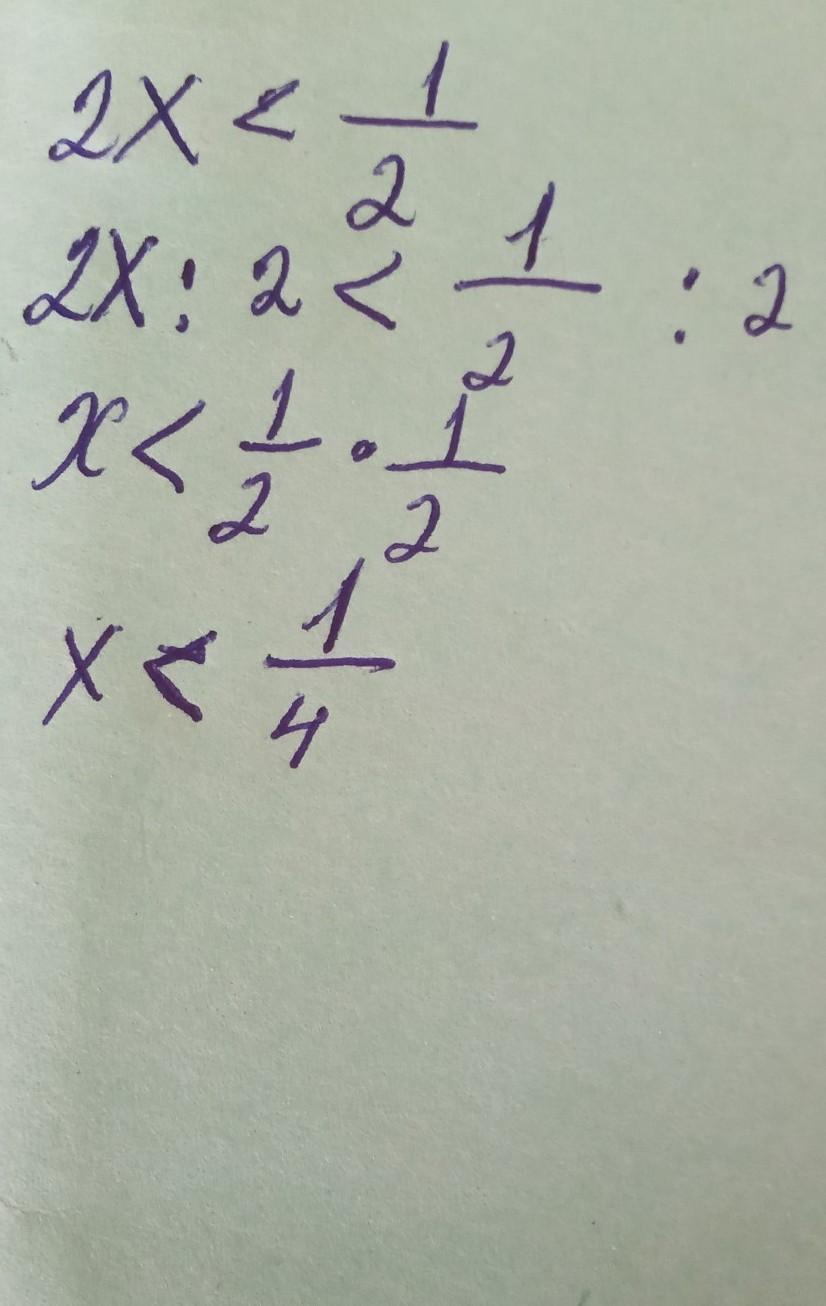 2x < 1/2
2x : 2 < 1/2 : 2
x < 1/2 · 1/2
x < 1/4